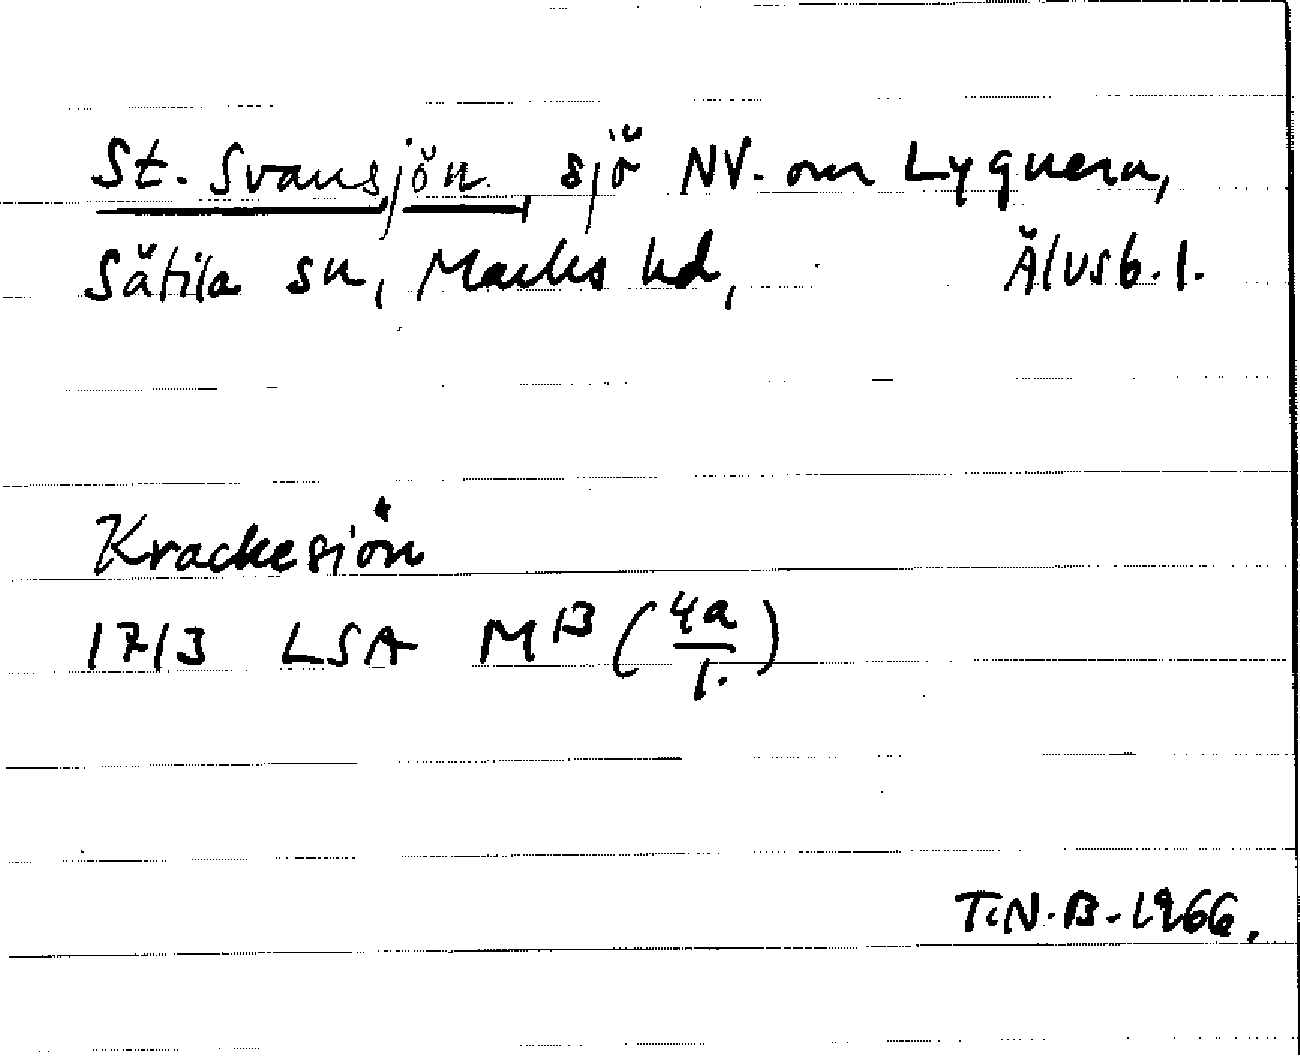 St. Svansjön, sjö NV. om Lygnern,
Sätila sn, Marks hd, Älvsb. l.
Krackesiön
1713 LSA M B (4a/1.)
T.N.B. 1966.